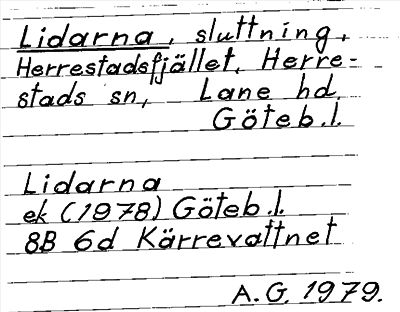 Lidarna, sluttning,
Herrestadsfjället, Herre-
stads sn, Lane hd
Göteb.l.
Lidarna
ek (1978) Göteb.l.
8B 6d Kärrevattnet
A.G. 1979.